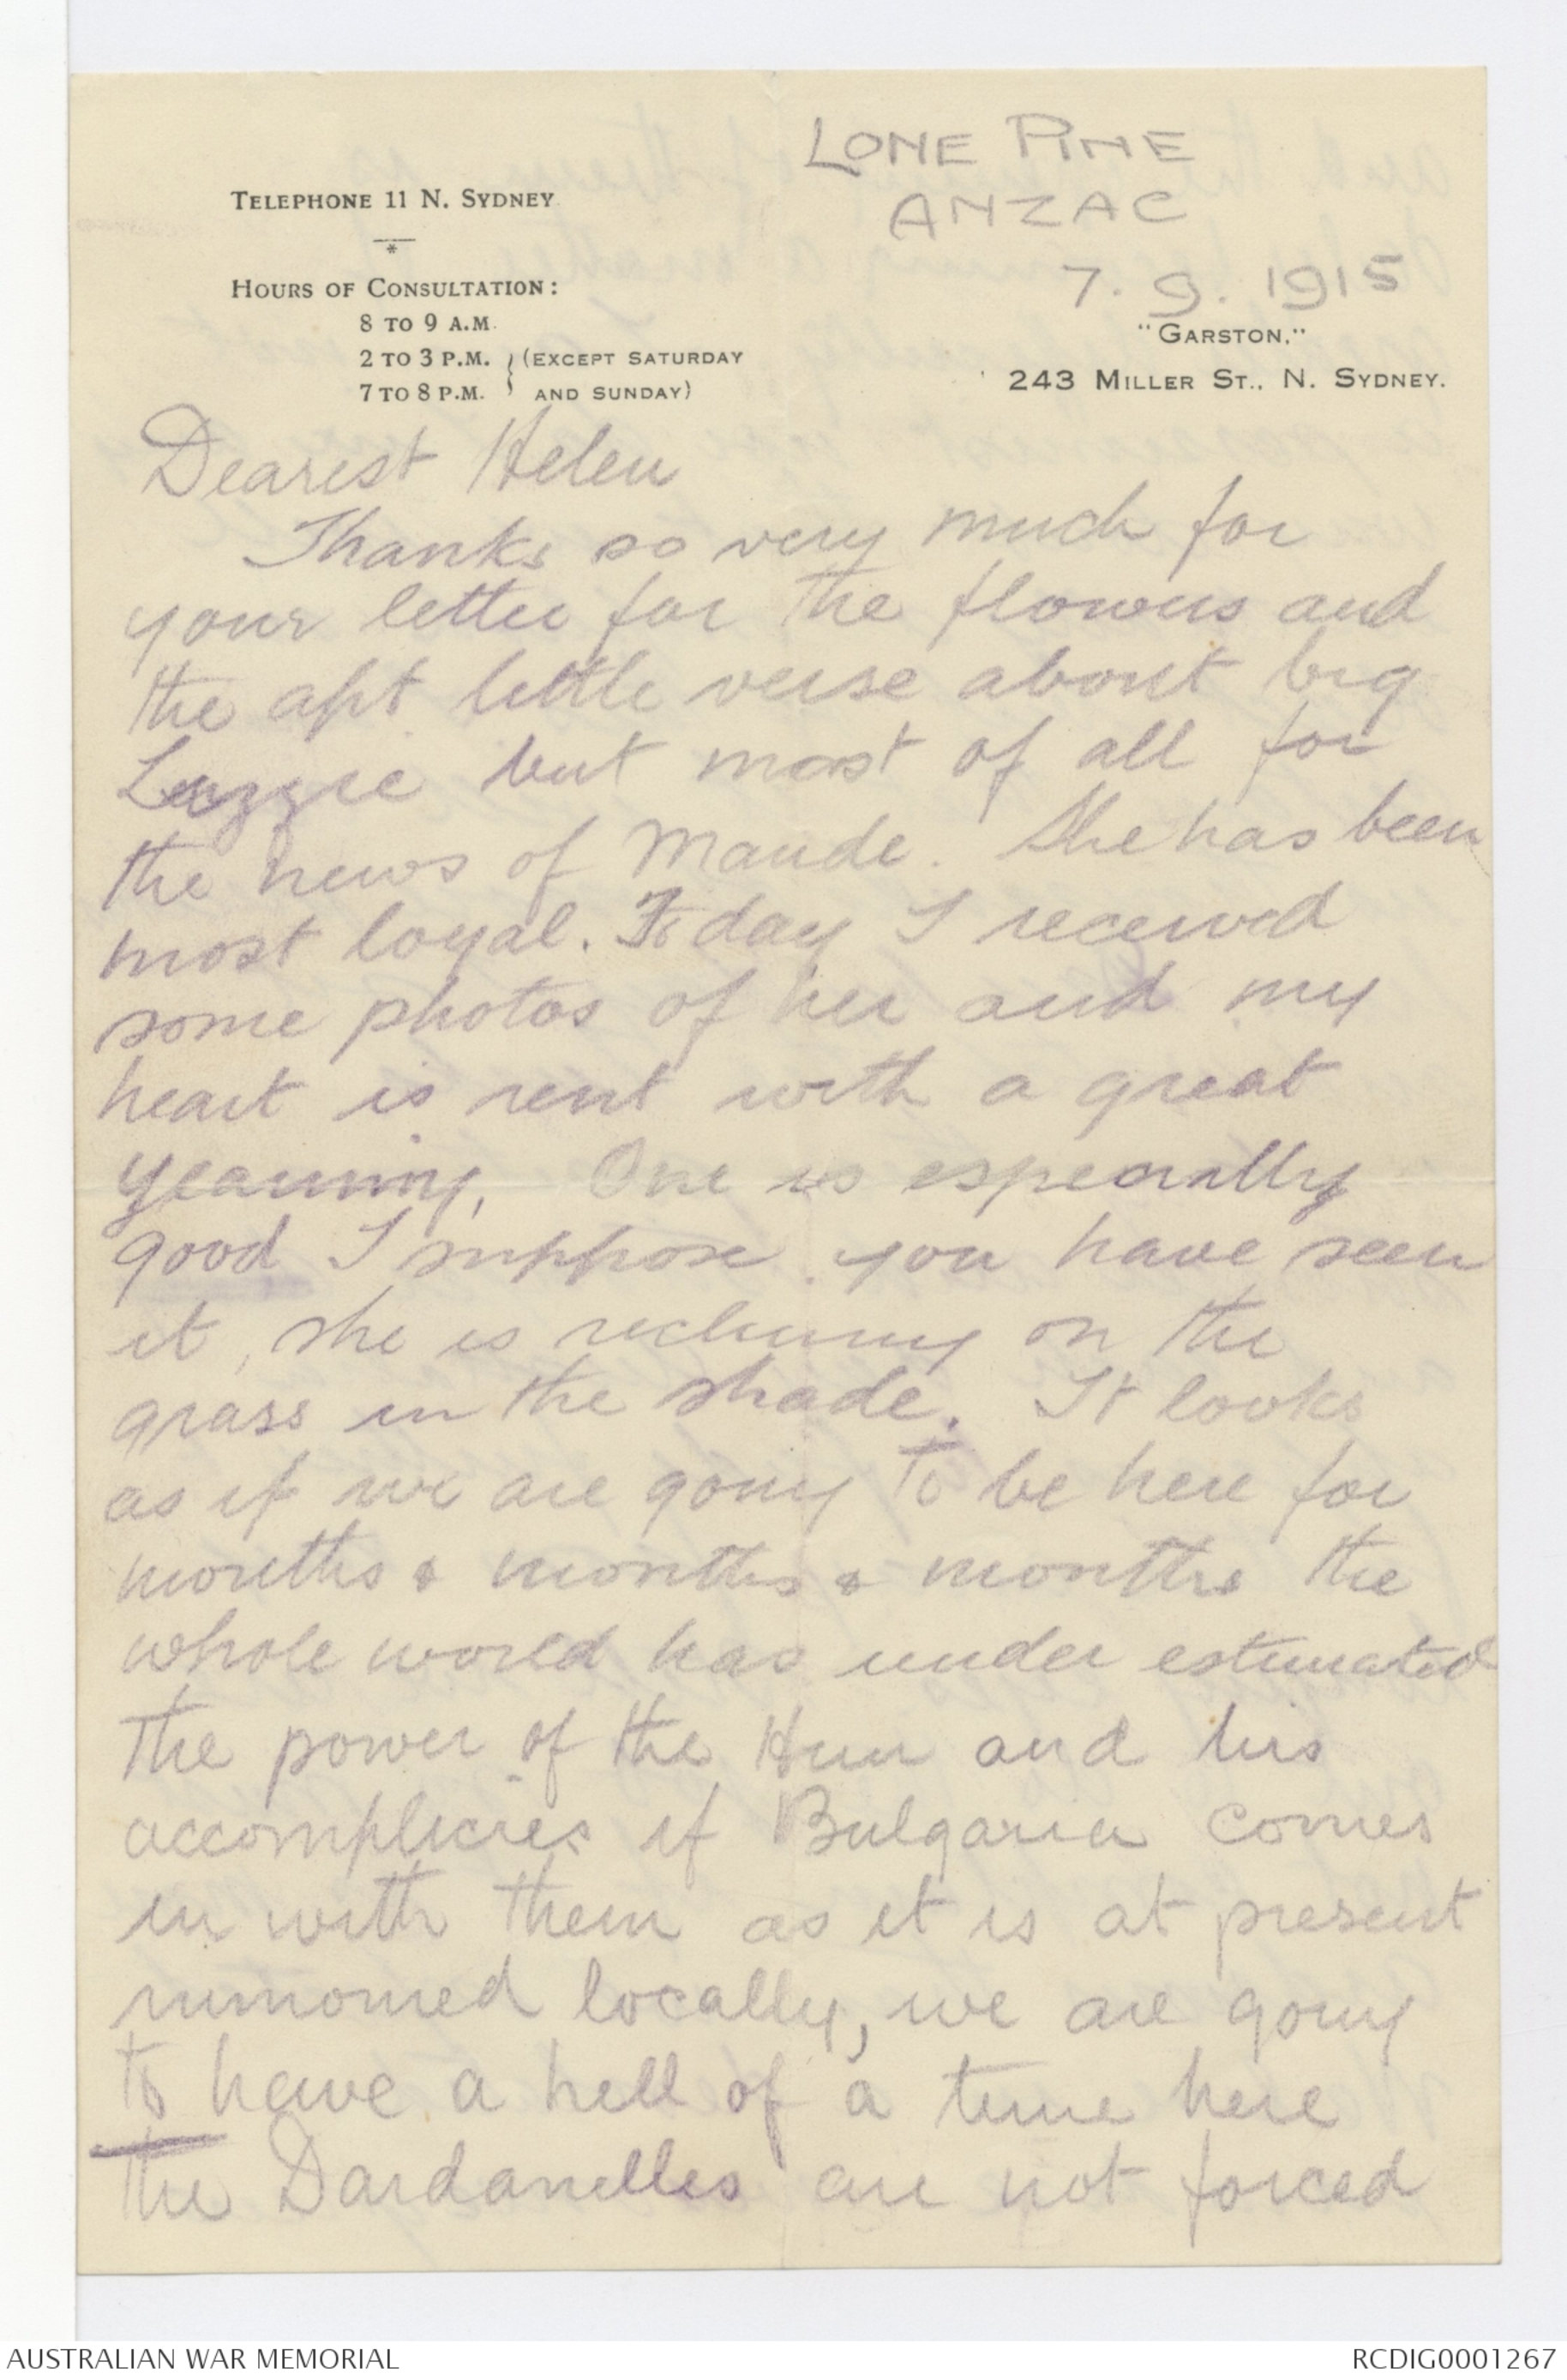 LONE PINE
ANZAC
7. 9. 1915
TELEPHONE 11 N. SYDNEY
*
HOURS OF CONSULTATION:
8 TO 9 A.M.
2 TO 3 P.M. } (EXCEPT SATURDAY
7 TO 8 P.M. } AND SUNDAY)
"GARSTON,"
243 MILLER ST., N. SYDNEY.
Dearest Helen
Thanks so very much for
your letter for the flowers and
the apt little verse about big
Lizzie but most of all for
the news of Maude. She has been
most loyal. To day I received
some photos of her and my
heart is rent with a great
yearning. One is especially
good I suppose you have seen
it, she is reclining on the
grass in the shade. It looks
as if we are going to be here for
months & months & months the
whole world has under estimated
the power of the Hun and his
accomplicies if Bulgaria comes
in with them as it is at present
rumoured locally, we are going
to have a hell of a time here
the Dardanelles are not forced
AUSTRALIAN WAR MEMORIAL
RCDIG0001267